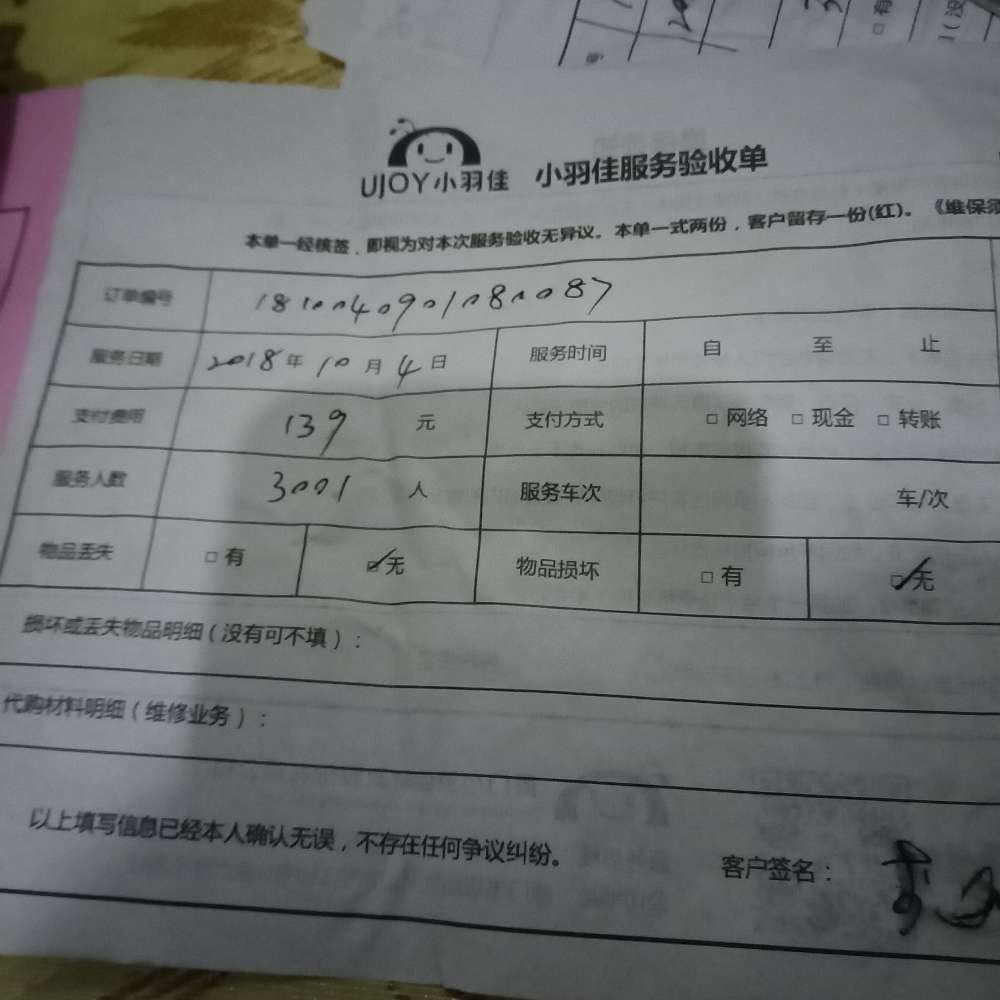 UJOY小羽佳 小羽佳服务验收单
本单一经核签，即视为对本次服务验收无异议。本单一式两份，客户留存一份(红)。《维保须
订单编号 1810040901080087
服务日期 2018年 10 月 4 日 服务时间 自 至 止
支付费用 139 元 支付方式 □ 网络 □ 现金 □ 转账
服务人数 3001 人 服务车次 车/次
物品丢失 □ 有 ☑无 物品损坏 □ 有 ☑无
损坏或丢失物品明细（没有可不填）：
代购材料明细（维修业务）：
以上填写信息已经本人确认无误，不存在任何争议纠纷。 客户签名：